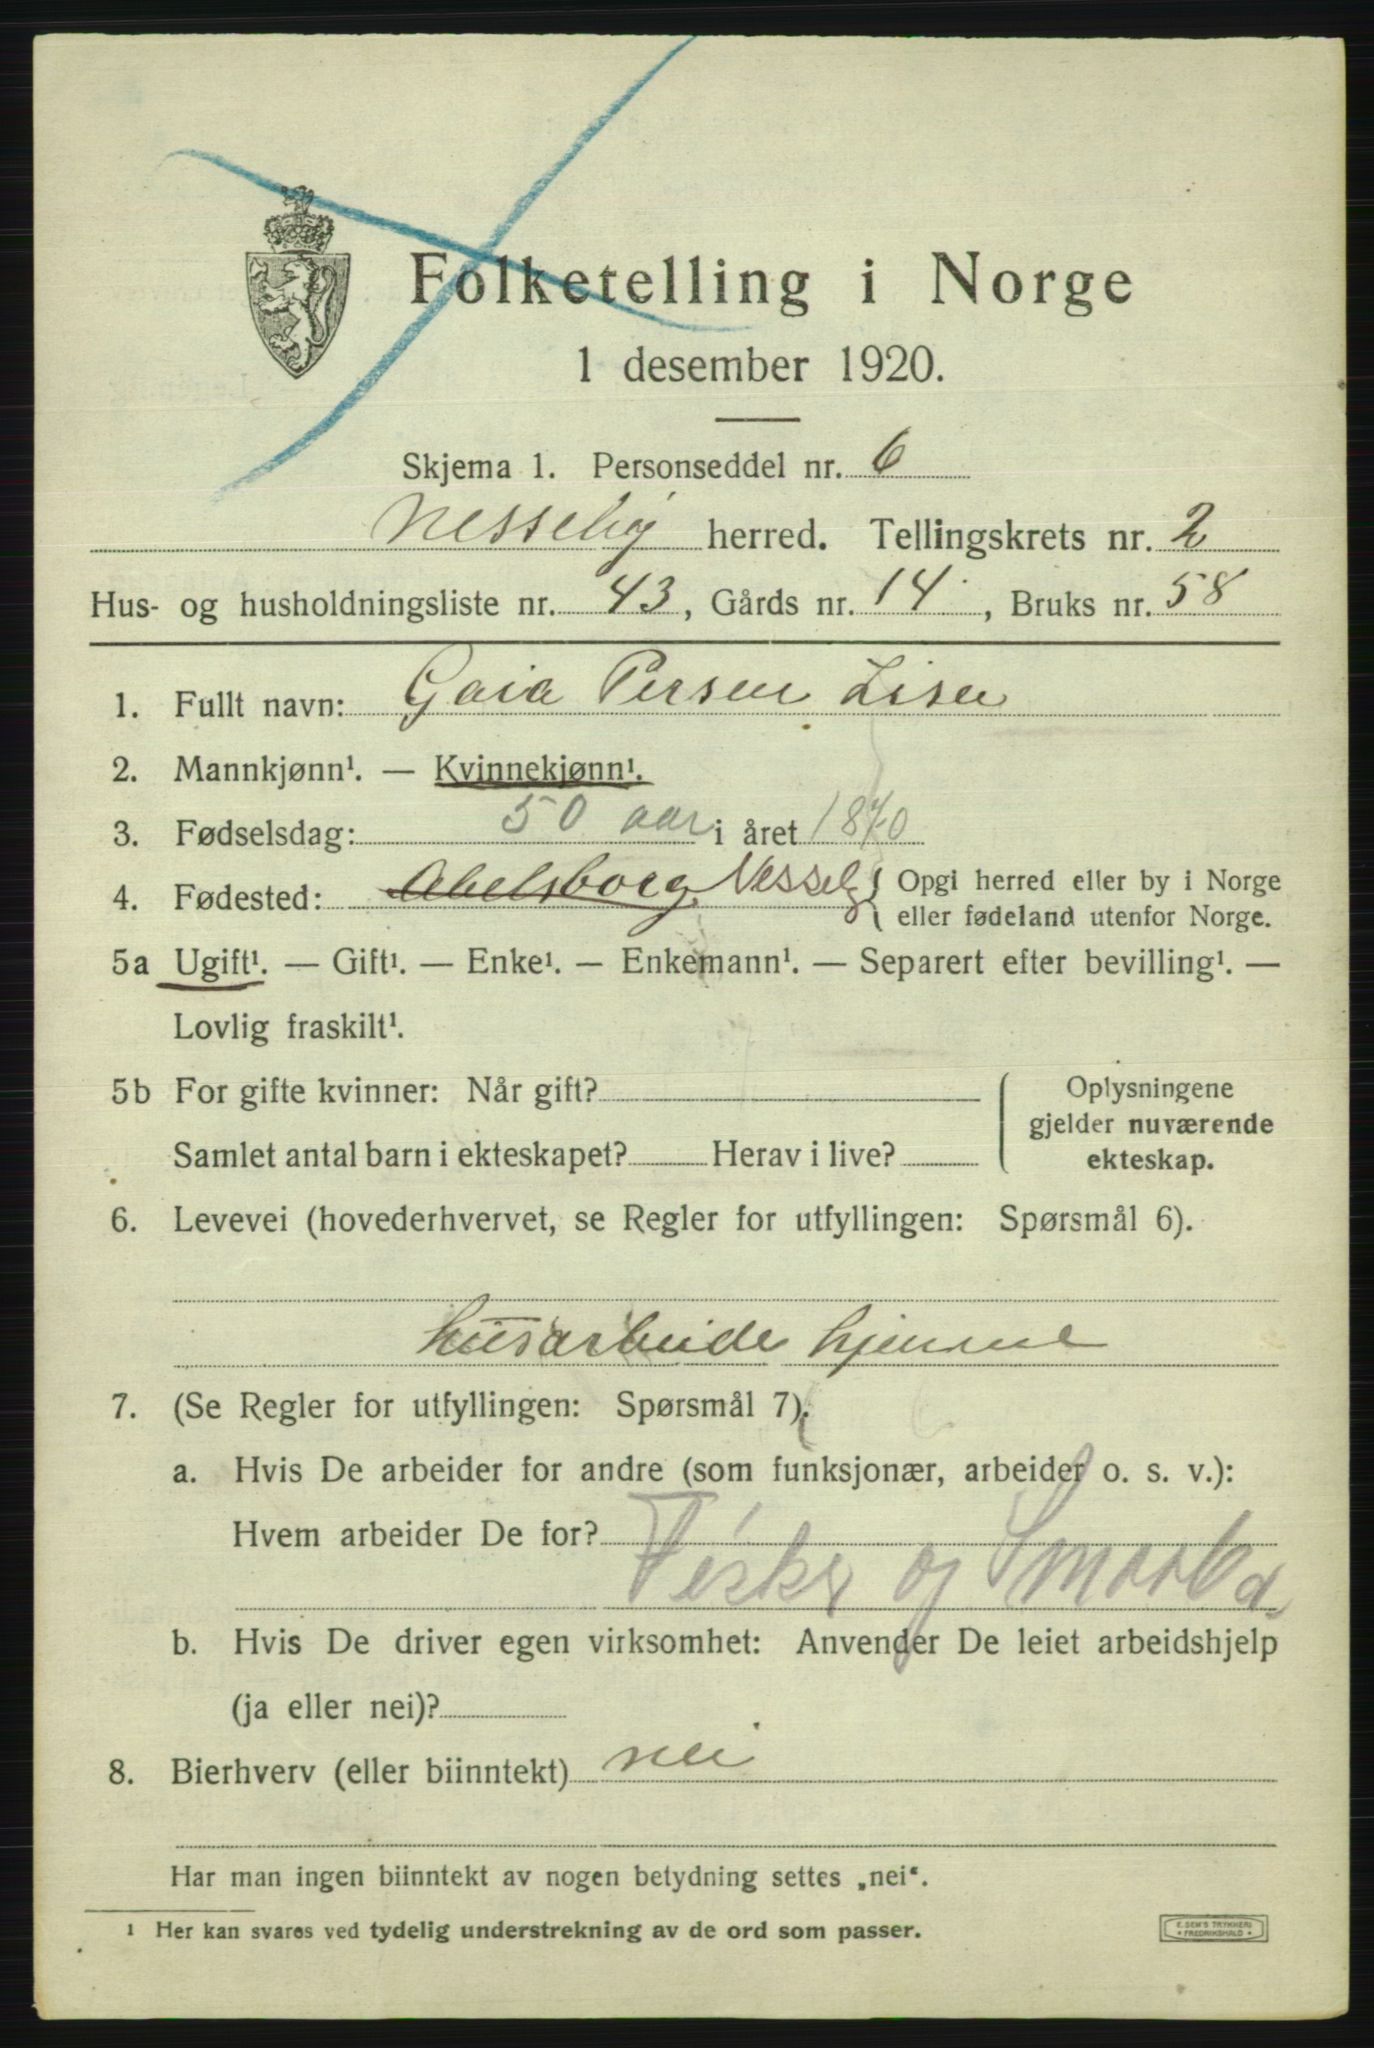 Folketelling i Norge
1 desember 1920.
Skjema 1. Personseddel nr. 6
Nesseby herred. Tellingskrets nr. 2
Hus- og husholdningsliste nr. 43, Gårds nr. 14, Bruks nr. 58
1. Fullt navn: Gaia Persen Lisen
2. Mannkjønn¹. — Kvinnekjønn¹.
3. Fødselsdag: 50 aar i året 1870
4. Fødested: Abelsborg Nesseby { Opgi herred eller by i Norge
eller fødeland utenfor Norge.
5a Ugift¹. — Gift¹. — Enke¹. — Enkemann¹. — Separert efter bevilling¹. —
Lovlig fraskilt¹.
5b For gifte kvinner: Når gift?
Samlet antal barn i ekteskapet? Herav i live?
Oplysningene
gjelder nuværende
ekteskap.
6. Levevei (hovederhvervet, se Regler for utfyllingen: Spørsmål 6).
husarbeide hjemme
7. (Se Regler for utfyllingen: Spørsmål 7).
a. Hvis De arbeider for andre (som funksjonær, arbeider o. s. v.):
Hvem arbeider De for?
Fisker og
b. Hvis De driver egen virksomhet: Anvender De leiet arbeidshjelp
(ja eller nei)?
8. Bierhverv (eller biinntekt) nei
Har man ingen biinntekt av nogen betydning settes „nei“.
¹ Her kan svares ved tydelig understrekning av de ord som passer.
E. SEM'S TRYKKERI
• FREDRIKSHALD •